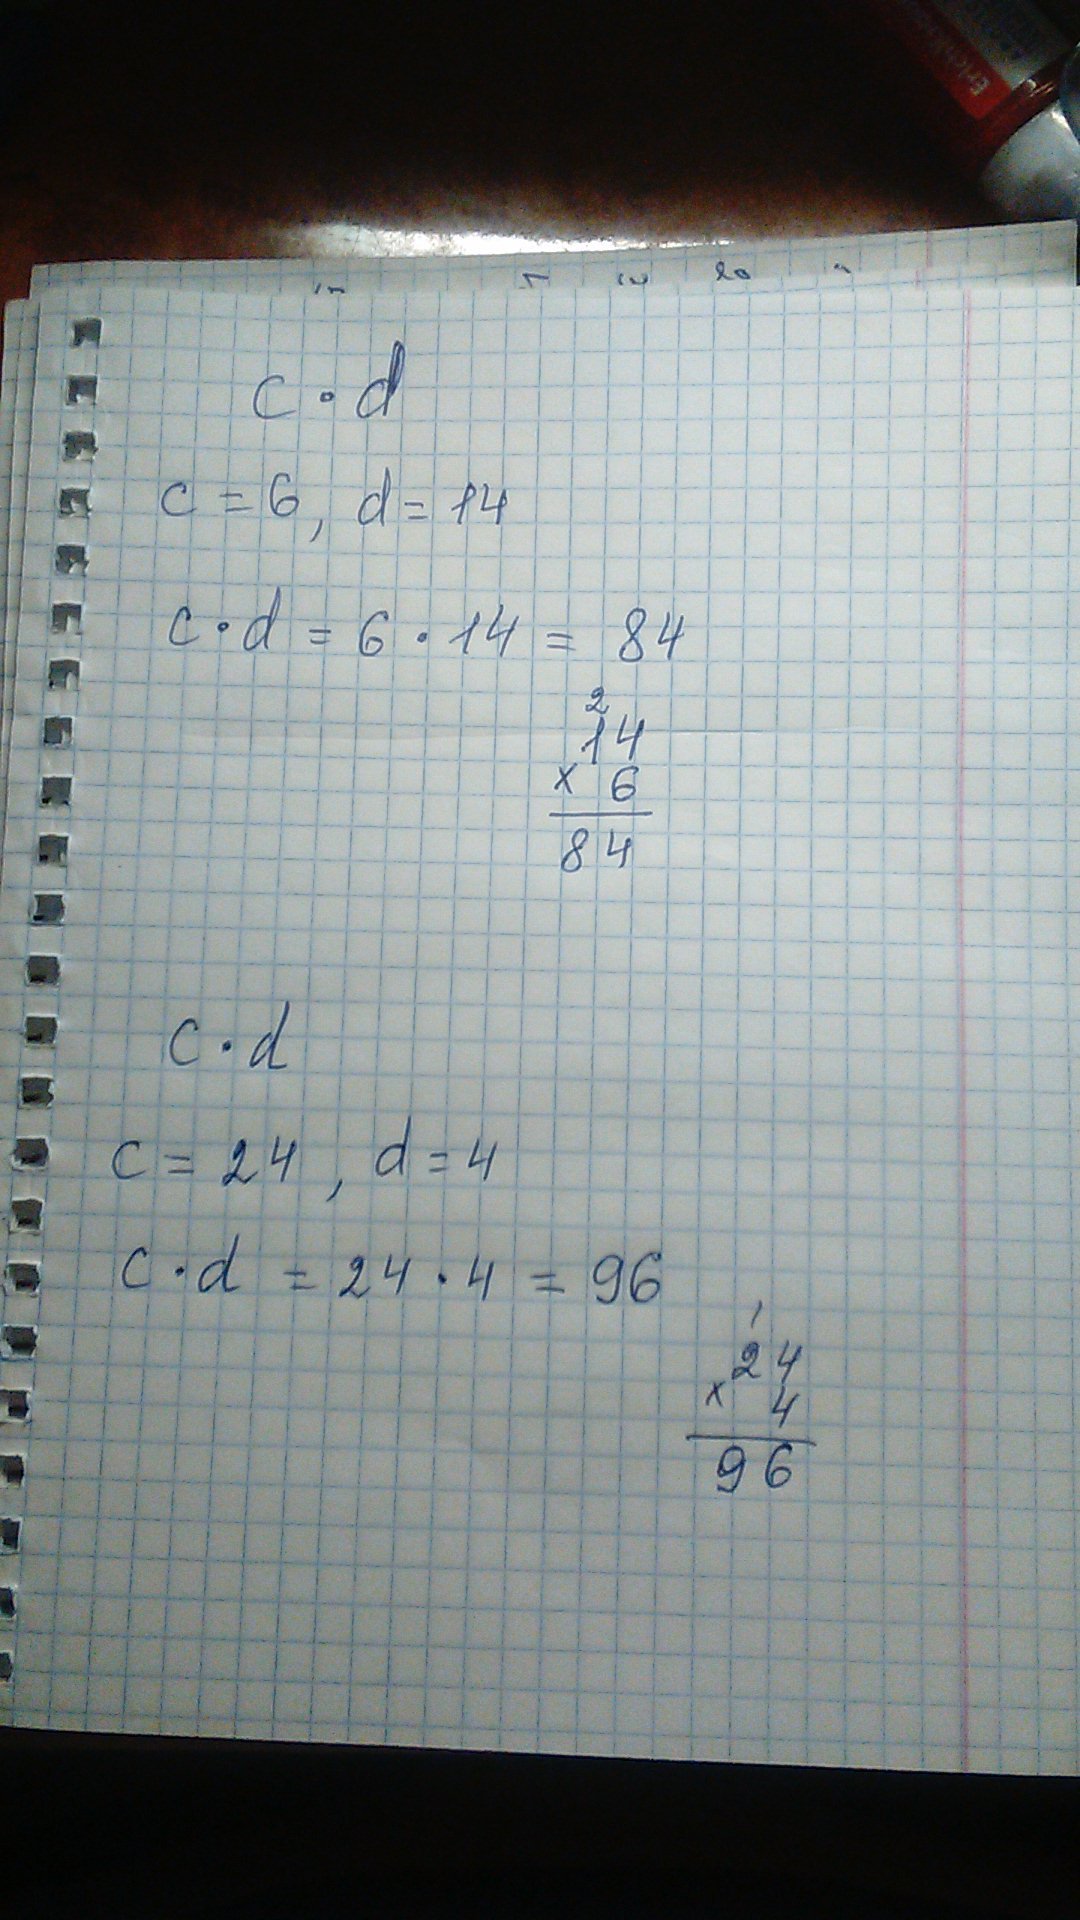 c · d
c = 6, d = 14
c · d = 6 · 14 = 84
2
14
x 6
84
c · d
c = 24, d = 4
c · d = 24 · 4 = 96
1
24
x 4
96